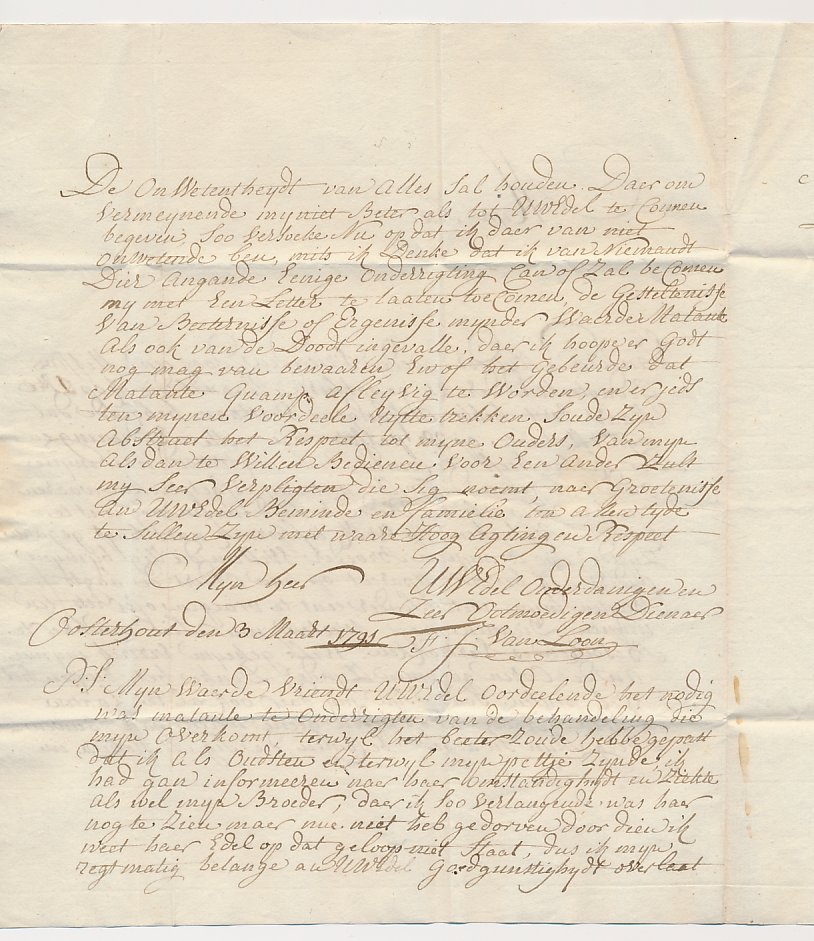 De onwetentheydt van alles sal houden. Daer om
vermeynende my niet Beter als tot UWEdel te Connen
begeven Soo versoeke Nu op dat ik daer van niet
onwetende ben, mits ik Denke dat ik van Niemandt
Dier angande Eenige Onderrigting Can of Zal beComen
my met Een Letter te laaten toeComen, de Gesteltenisse
van Beeternisse of Ergenisse mynder Waerde Matante
als ook van de Doodt ingevalle, daer ik hoope er Godt
nog mag van bewaaren En of het gebeurde dat
Matante Quamp afleyvig te Worden, en er jets
ten mynen Voordeele Uytte trekken Soude Zyn
Abstract het Respect tot myne Ouders, van myn
als dan te Willen Bedienen voor Een ander Zult
my Seer Verpligten die Sig noemt, naer Groetenisse
an UWEdel Beminde en familie ten allen tyde
te Sullen Zyn met waare Hoog Agting en Respect
Myn heer UWEdel Onderdanigen en
Zeer Ootmoedigen Dienaer
Oosterhout den 3 Maart 1791 J. Van Loon
P:S: Myn Waerde Vriendt UWEdel Oordeelende het nodig
was matante te Onderrigten van de behandeling die
myn Overkomt, terwyl het beeter Zoude hebbe gepast
dat ik als Oudsten en terwyl myn petije Zynde, ik
had gan informeeren naer haer omstandighydt en Ziekte
als wel myn Broeder, daer ik Soo verlangende was haer
nog te Zien maer nue niet heb gedorven door dien ik
weet haer Edel op dat geloop niet Staat, dus ik myn
regtmatig belange an UWEdel Goedgunstighydt overlaat